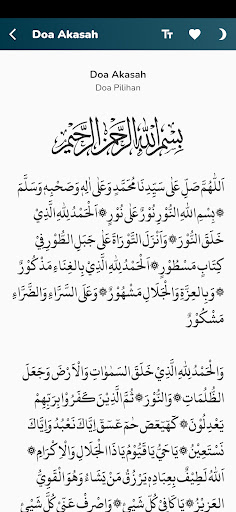 Doa Akasah
Doa Akasah
Doa Pilihan
بِسْمِ اللهِ الرَّحْمٰنِ الرَّحِيْمِ
اَللّٰهُمَّ صَلِّ عَلٰى سَيِّدِنَا مُحَمَّدٍ وَعَلٰى اٰلِهٖ وَصَحْبِهٖ وَسَلَّمَ
۞بِسْمِ اللهِ النُّوْرِ نُوْرٌ عَلٰى نُوْرٍ۞اَلْحَمْدُ لِلّٰهِ الَّذِيْ
خَلَقَ النُّوْرَ۞وَاَنْزَلَ التَّوْرَاةَ عَلٰى جَبَلِ الطُّوْرِ فِيْ
كِتَابٍ مَسْطُوْرٍ۞اَلْحَمْدُ لِلّٰهِ الَّذِيْ بِالْغِنَاءِ مَذْكُوْرٌ
۞وَبِالْعِزَّةِ وَالْجَلَالِ مَشْهُوْرٌ۞وَعَلَى السَّرَّاءِ وَالضَّرَّاءِ
مَشْكُوْرٌ
وَالْحَمْدُ لِلّٰهِ الَّذِيْ خَلَقَ السَّمٰوَاتِ وَالْاَرْضَ وَجَعَلَ
الظُّلُمَاتِ۞وَالنُّوْرَ۞ثُمَّ الَّذِيْنَ كَفَرُوْا بِرَبِّهِمْ
يَعْدِلُوْنَ۞كٓهٰيٰعٓصٓ حٰمٓ عٓسٓقٓ اِيَّاكَ نَعْبُدُ وَاِيَّاكَ
نَسْتَعِيْنُ۞يَا حَيُّ يَا قَيُّوْمُ يَا ذَا الْجَلَالِ وَالْاِكْرَامِ۞
اَللهُ لَطِيْفٌ بِعِبَادِهٖ يَرْزُقُ مَنْ يَشَاءُ وَهُوَ الْقَوِيُّ
الْعَزِيْزُ۞يَا كَافِيَ كُلِّ شَيْئٍ۞وَاصْرِفْ عَنِّيْ كُلَّ شَيْئٍ